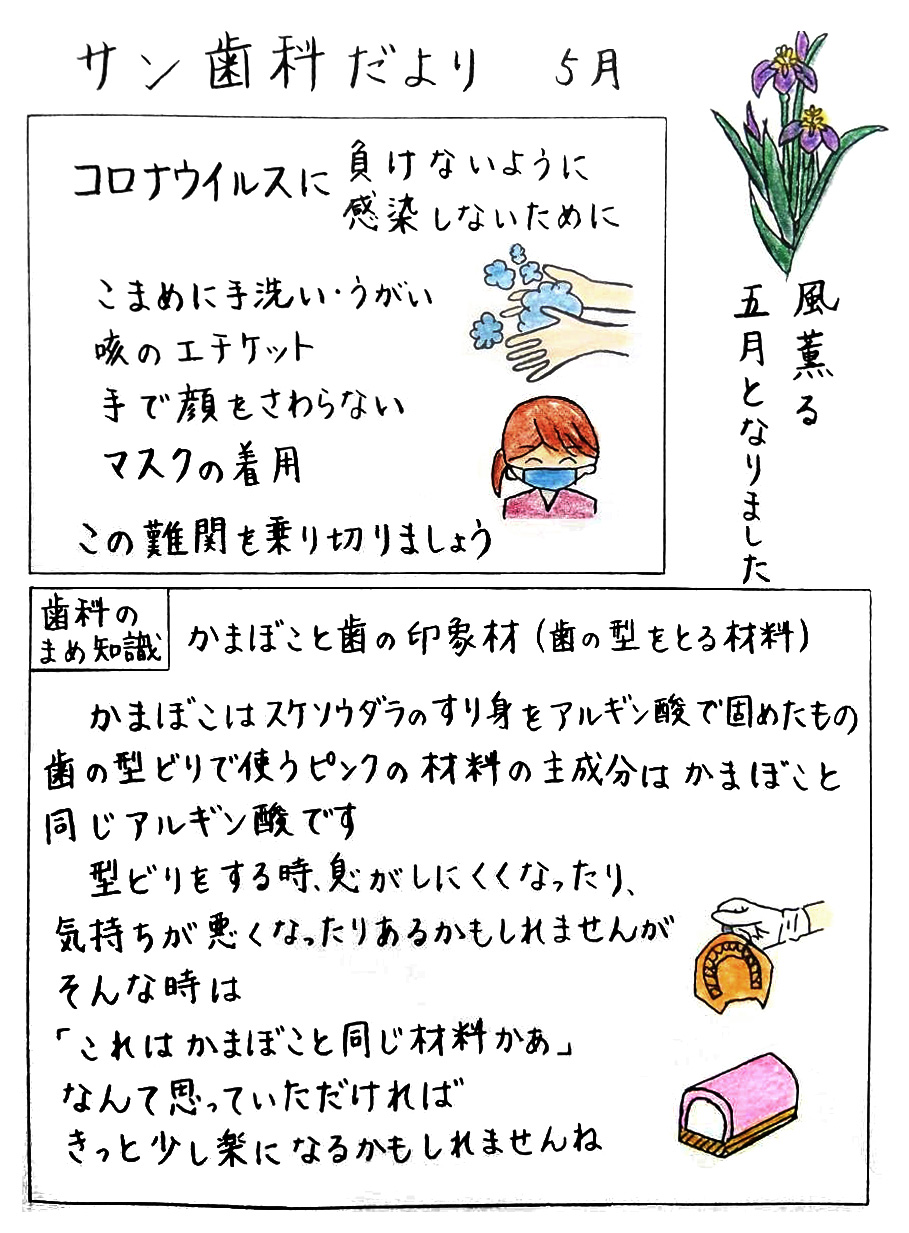 サン歯科だより 5月
風薫る
五月となりました
コロナウイルスに 負けないように
感染しないために
こまめに手洗い・うがい
咳のエチケット
手で顔をさわらない
マスクの着用
この難関を乗り切りましょう
歯科の
まめ知識
かまぼこと歯の印象材(歯の型をとる材料)
かまぼこはスケソウダラのすり身をアルギン酸で固めたもの
歯の型どりで使うピンクの材料の主成分はかまぼこと
同じアルギン酸です
型どりをする時、息がしにくくなったり、
気持ちが悪くなったりあるかもしれませんが
そんな時は
「これはかまぼこと同じ材料かぁ」
なんて思っていただければ
きっと少し楽になるかもしれませんね